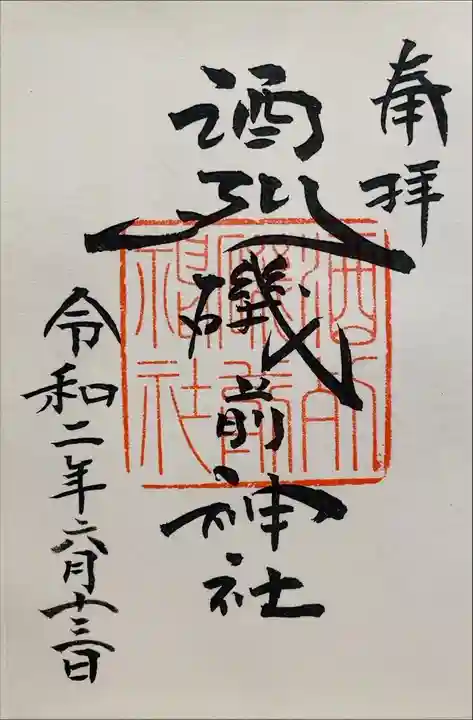 奉拝
酒列磯前神社
令和二年六月十三日
酒列
磯前
神社